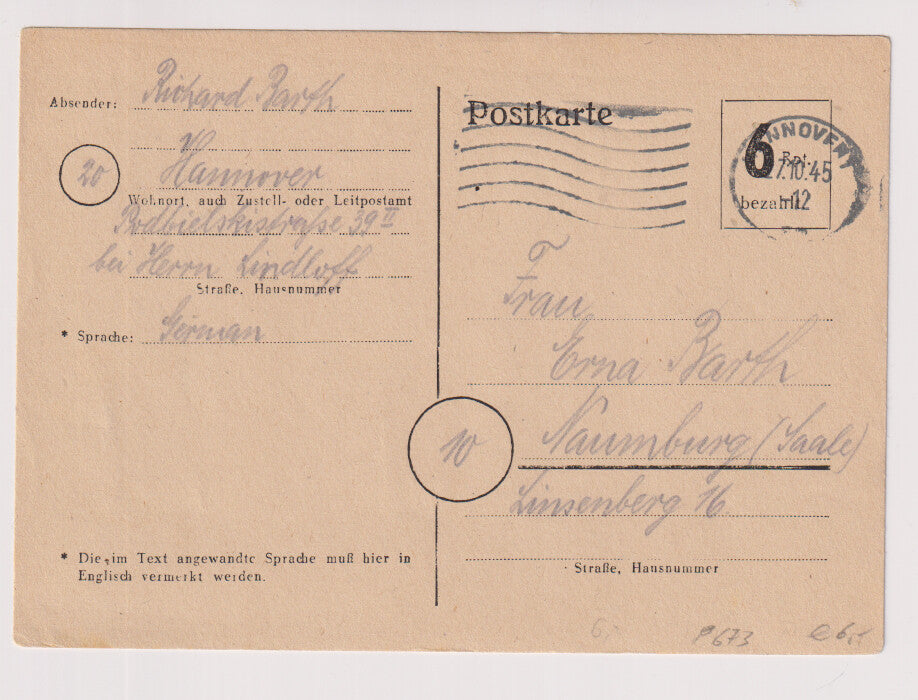 Absender: Richard Barth
20
Hannover
Wohnort, auch Zustell- oder Leitpostamt
Podbielskistraße 39 II
bei Herrn Lindloff
Straße, Hausnummer
* Sprache: German
* Die im Text angewandte Sprache muß hier in
Englisch vermerkt werden.
Postkarte
6 Rpf.
bezahlt
HANNOVER
7.10.45
-12
Frau
Erna Barth
10
Naumburg (Saale)
Linsenberg 16
Straße, Hausnummer
6,-
P 673